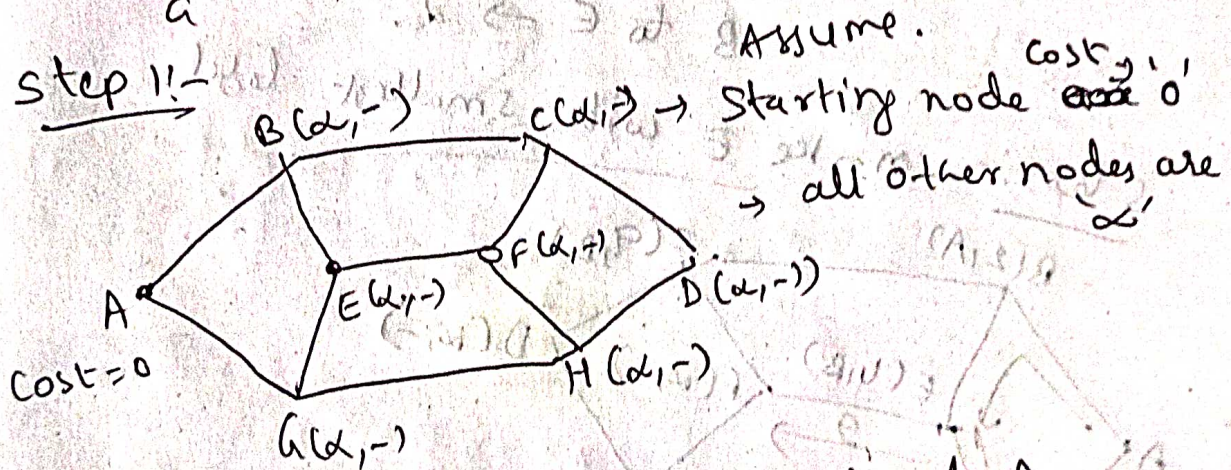 G
Step 1:-
Assume.
→ Starting node cost is '0'
→ all other nodes are
'α'
B(α,-)
C(α,-)
F(α,-)
E(α,-)
D(α,-))
A
Cost=0
H(α,-)
G(α,-)